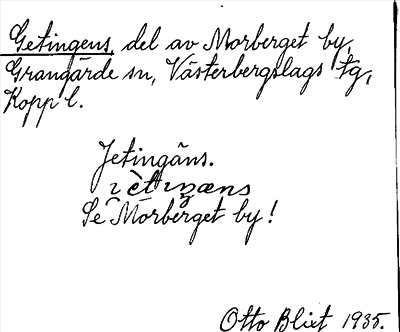 Getingens, del av Morberget by,
Grangärde sn, Västerbergslags tg,
Kopp l.
Jetingäns.
Se Morberget by!
Otto Blixt 1935.